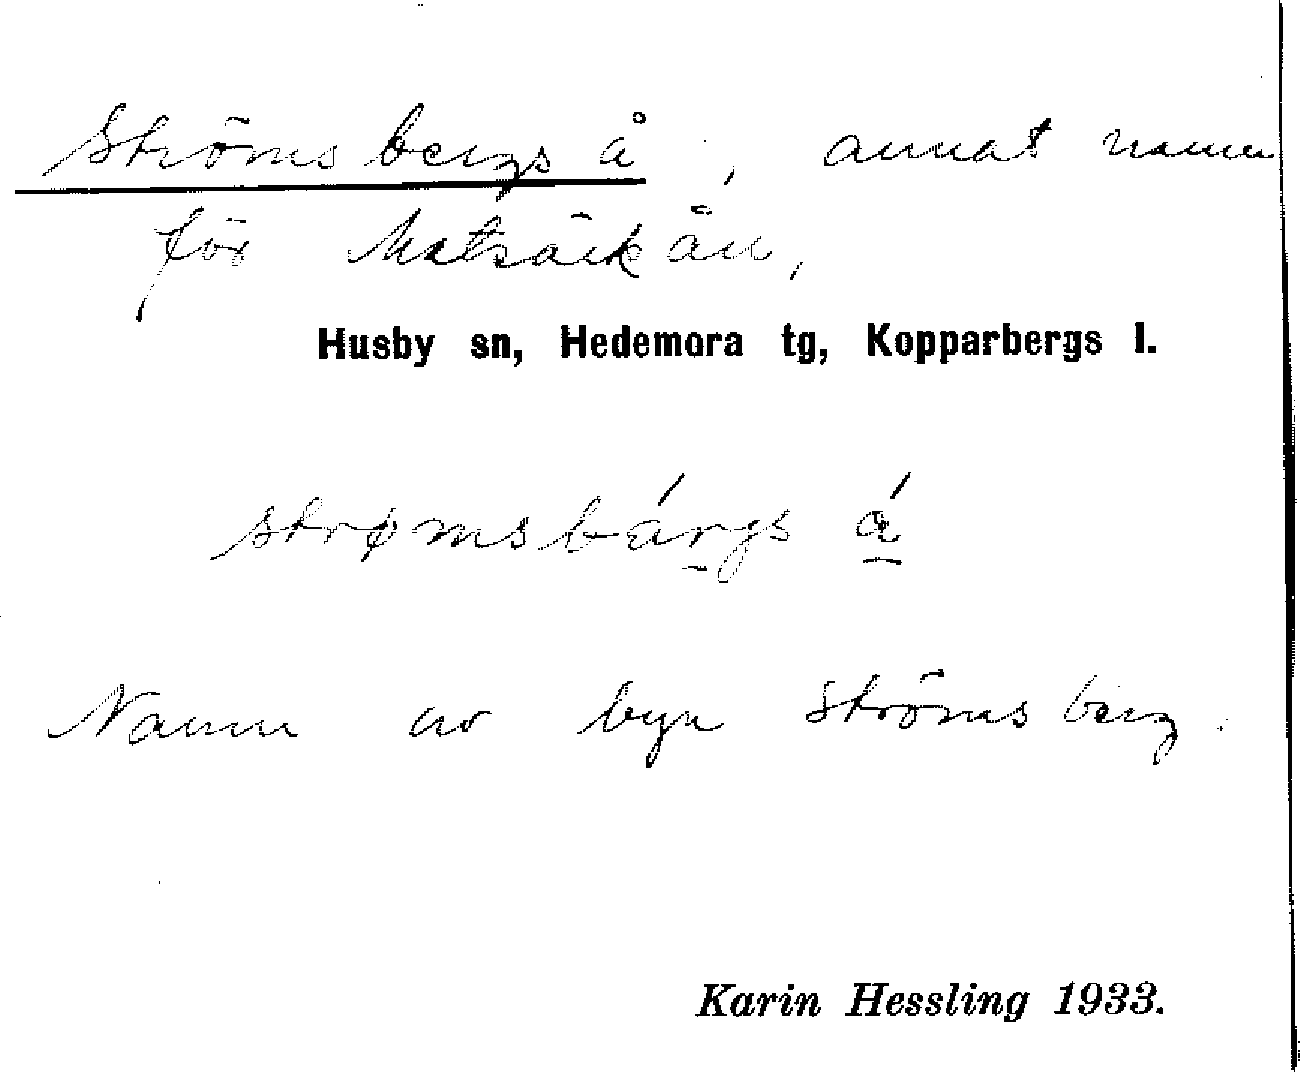 Strömsbergs å, annat namn
för Matsäckån,
Husby sn, Hedemora tg, Kopparbergs l.
strømsbárgs á̱
Namn av byn Strömsberg.
Karin Hessling 1933.